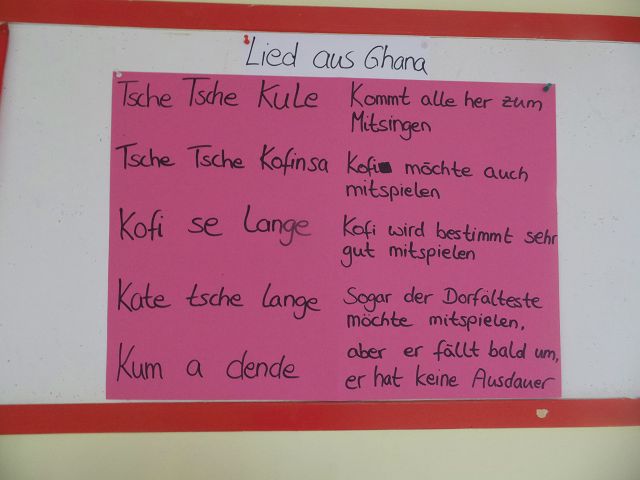 Lied aus Ghana
Tsche Tsche Kule
Kommt alle her zum
Mitsingen
Tsche Tsche Kofinsa
Kofi möchte auch
mitspielen
Kofi se lange
Kofi wird bestimmt sehr
gut mitspielen
Kate tsche lange
Sogar der Dorfälteste
möchte mitspielen,
Kum a dende
aber er fällt bald um,
er hat keine Ausdauer